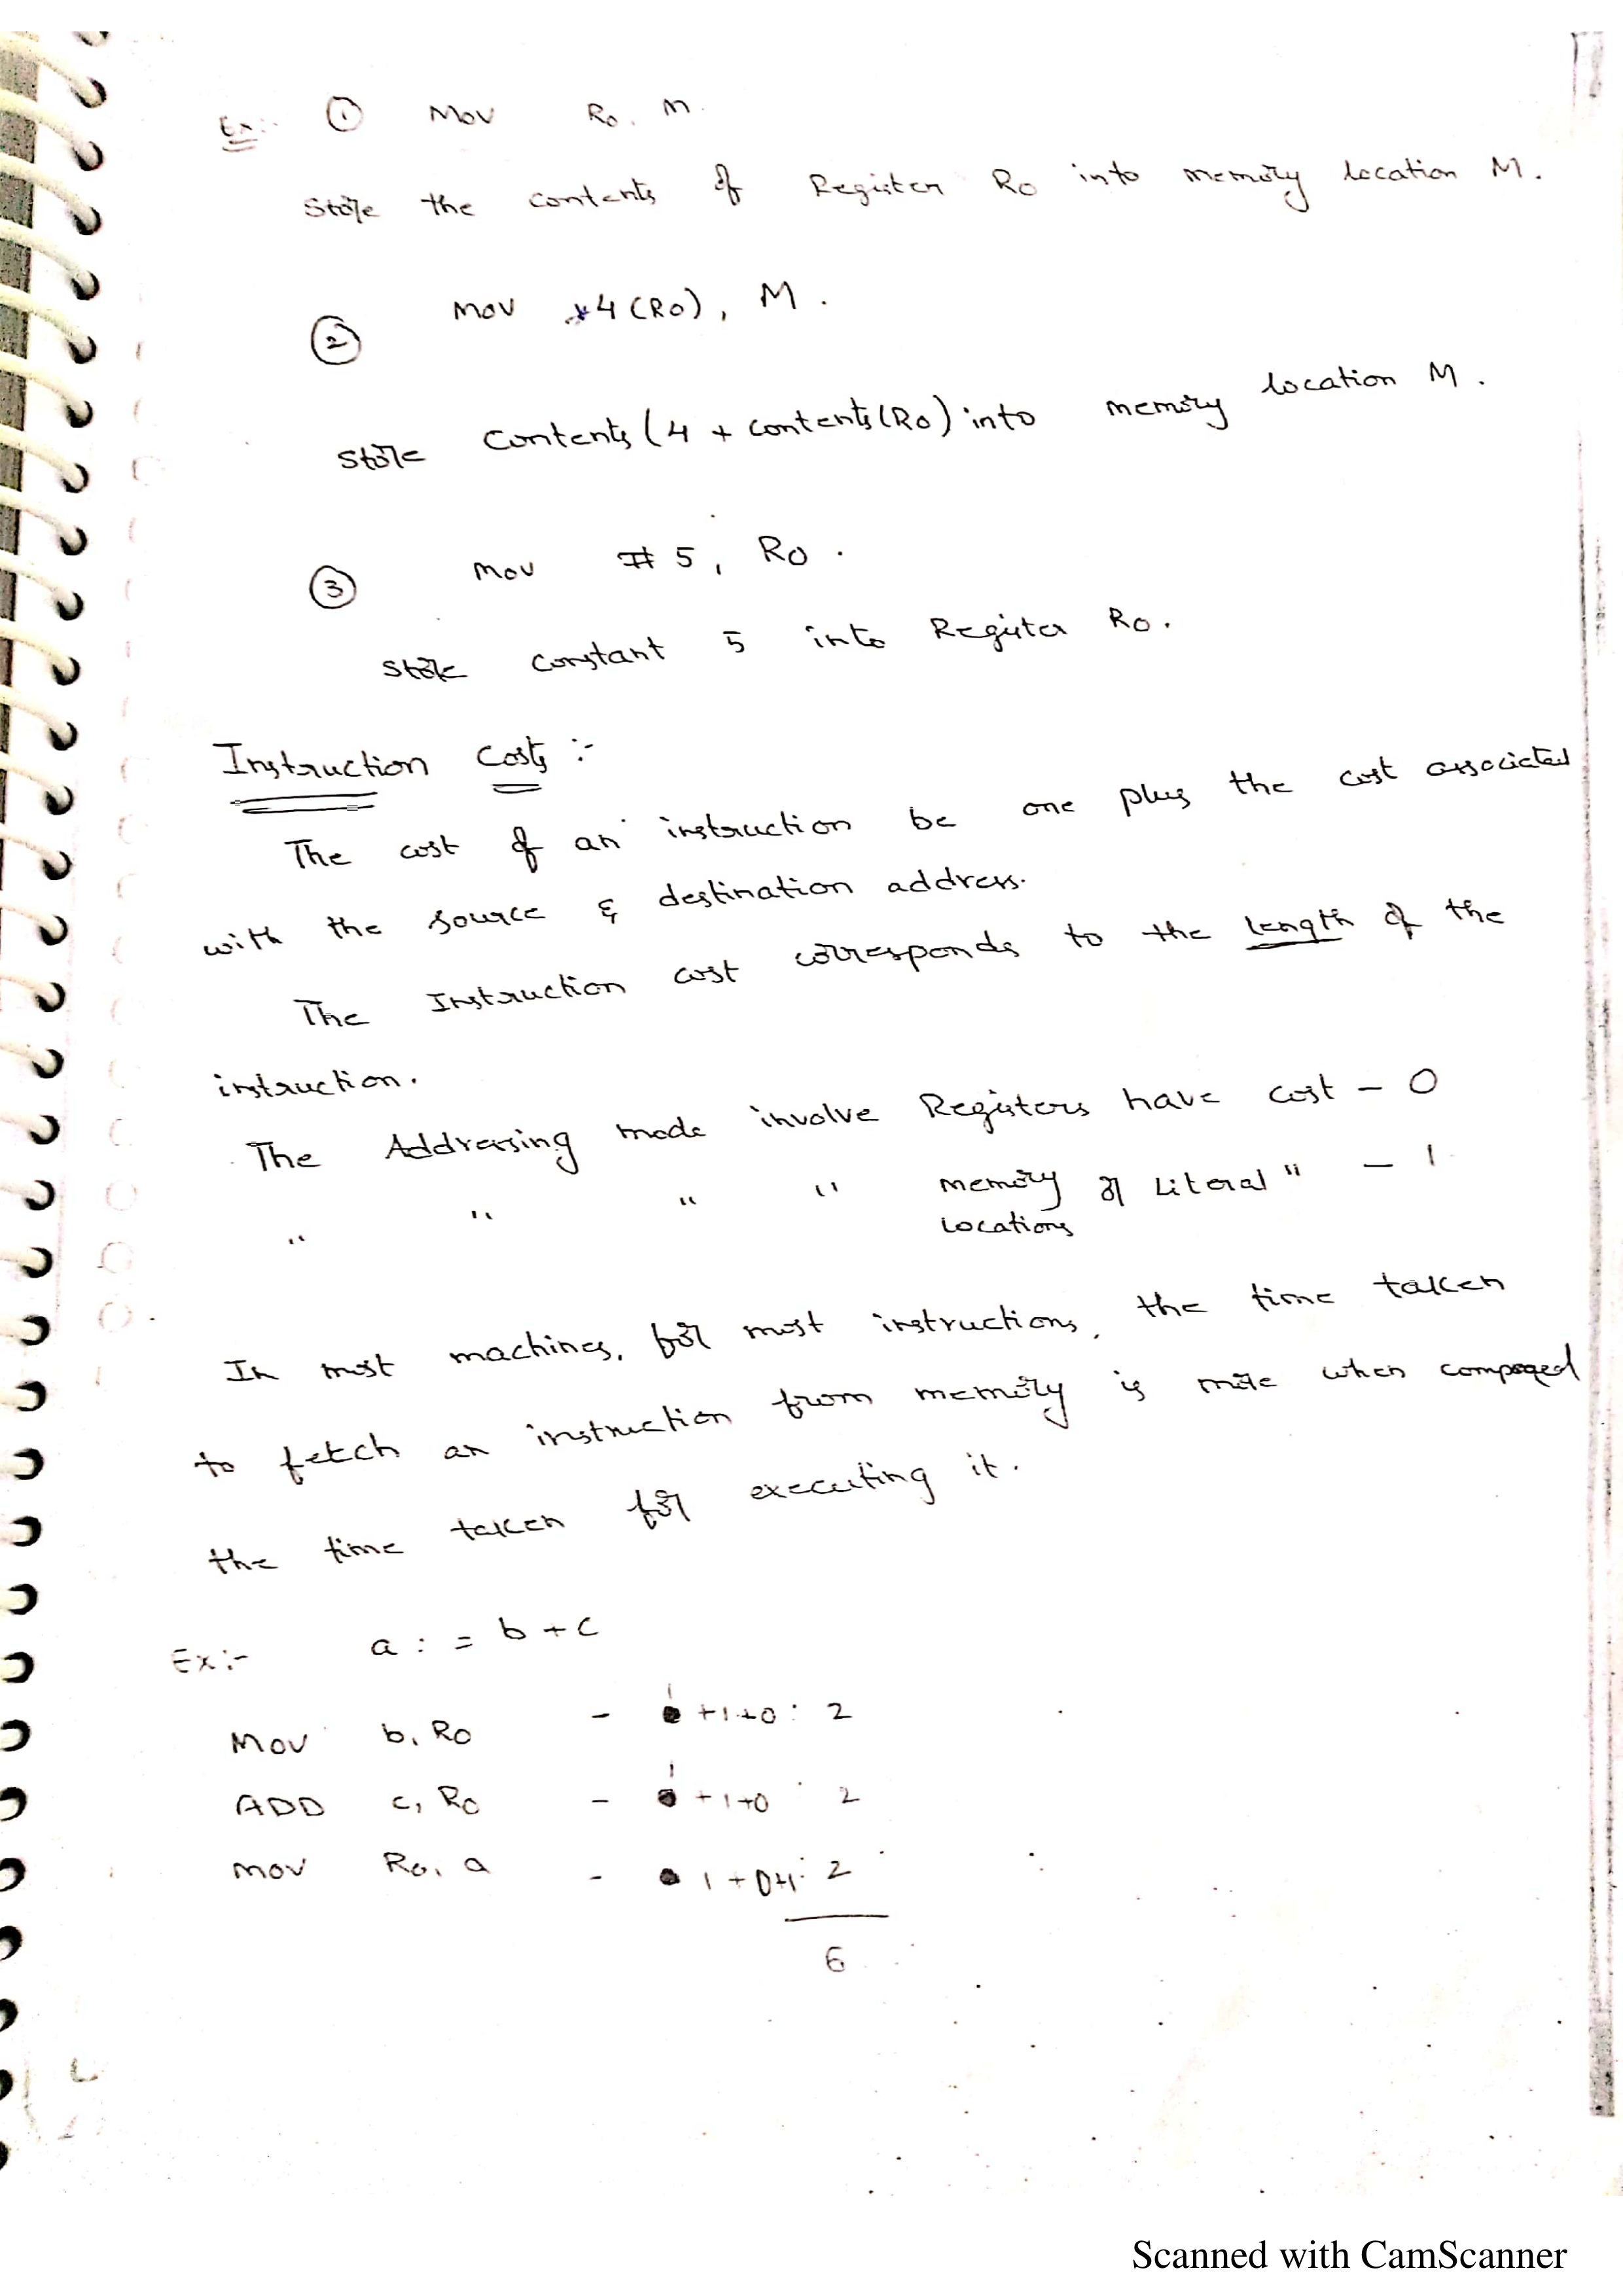 Ex:- ① Mov R0, M.
Store the contents of Register R0 into memory location M.
② Mov *4(R0), M.
Store Contents(4 + contents(R0) into memory location M.
③ Mov #5, R0.
Store constant 5 into Register R0.
Instruction Costs :-
The cost of an instruction be one plus the cost associated
with the source & destination address.
The Instruction cost corresponds to the length of the
instruction.
The Addressing mode involve Registers have cost - 0
" " " " memory or Literal " - 1
locations
In most machines, for most instructions, the time taken
to fetch an instruction from memory is more when compared
the time taken for executing it.
Ex:- a := b+c
Mov b, R0 - 1+1+0: 2
ADD c, R0 - 1+1+0 2
Mov R0, a - 1+0+1: 2
6
Scanned with CamScanner